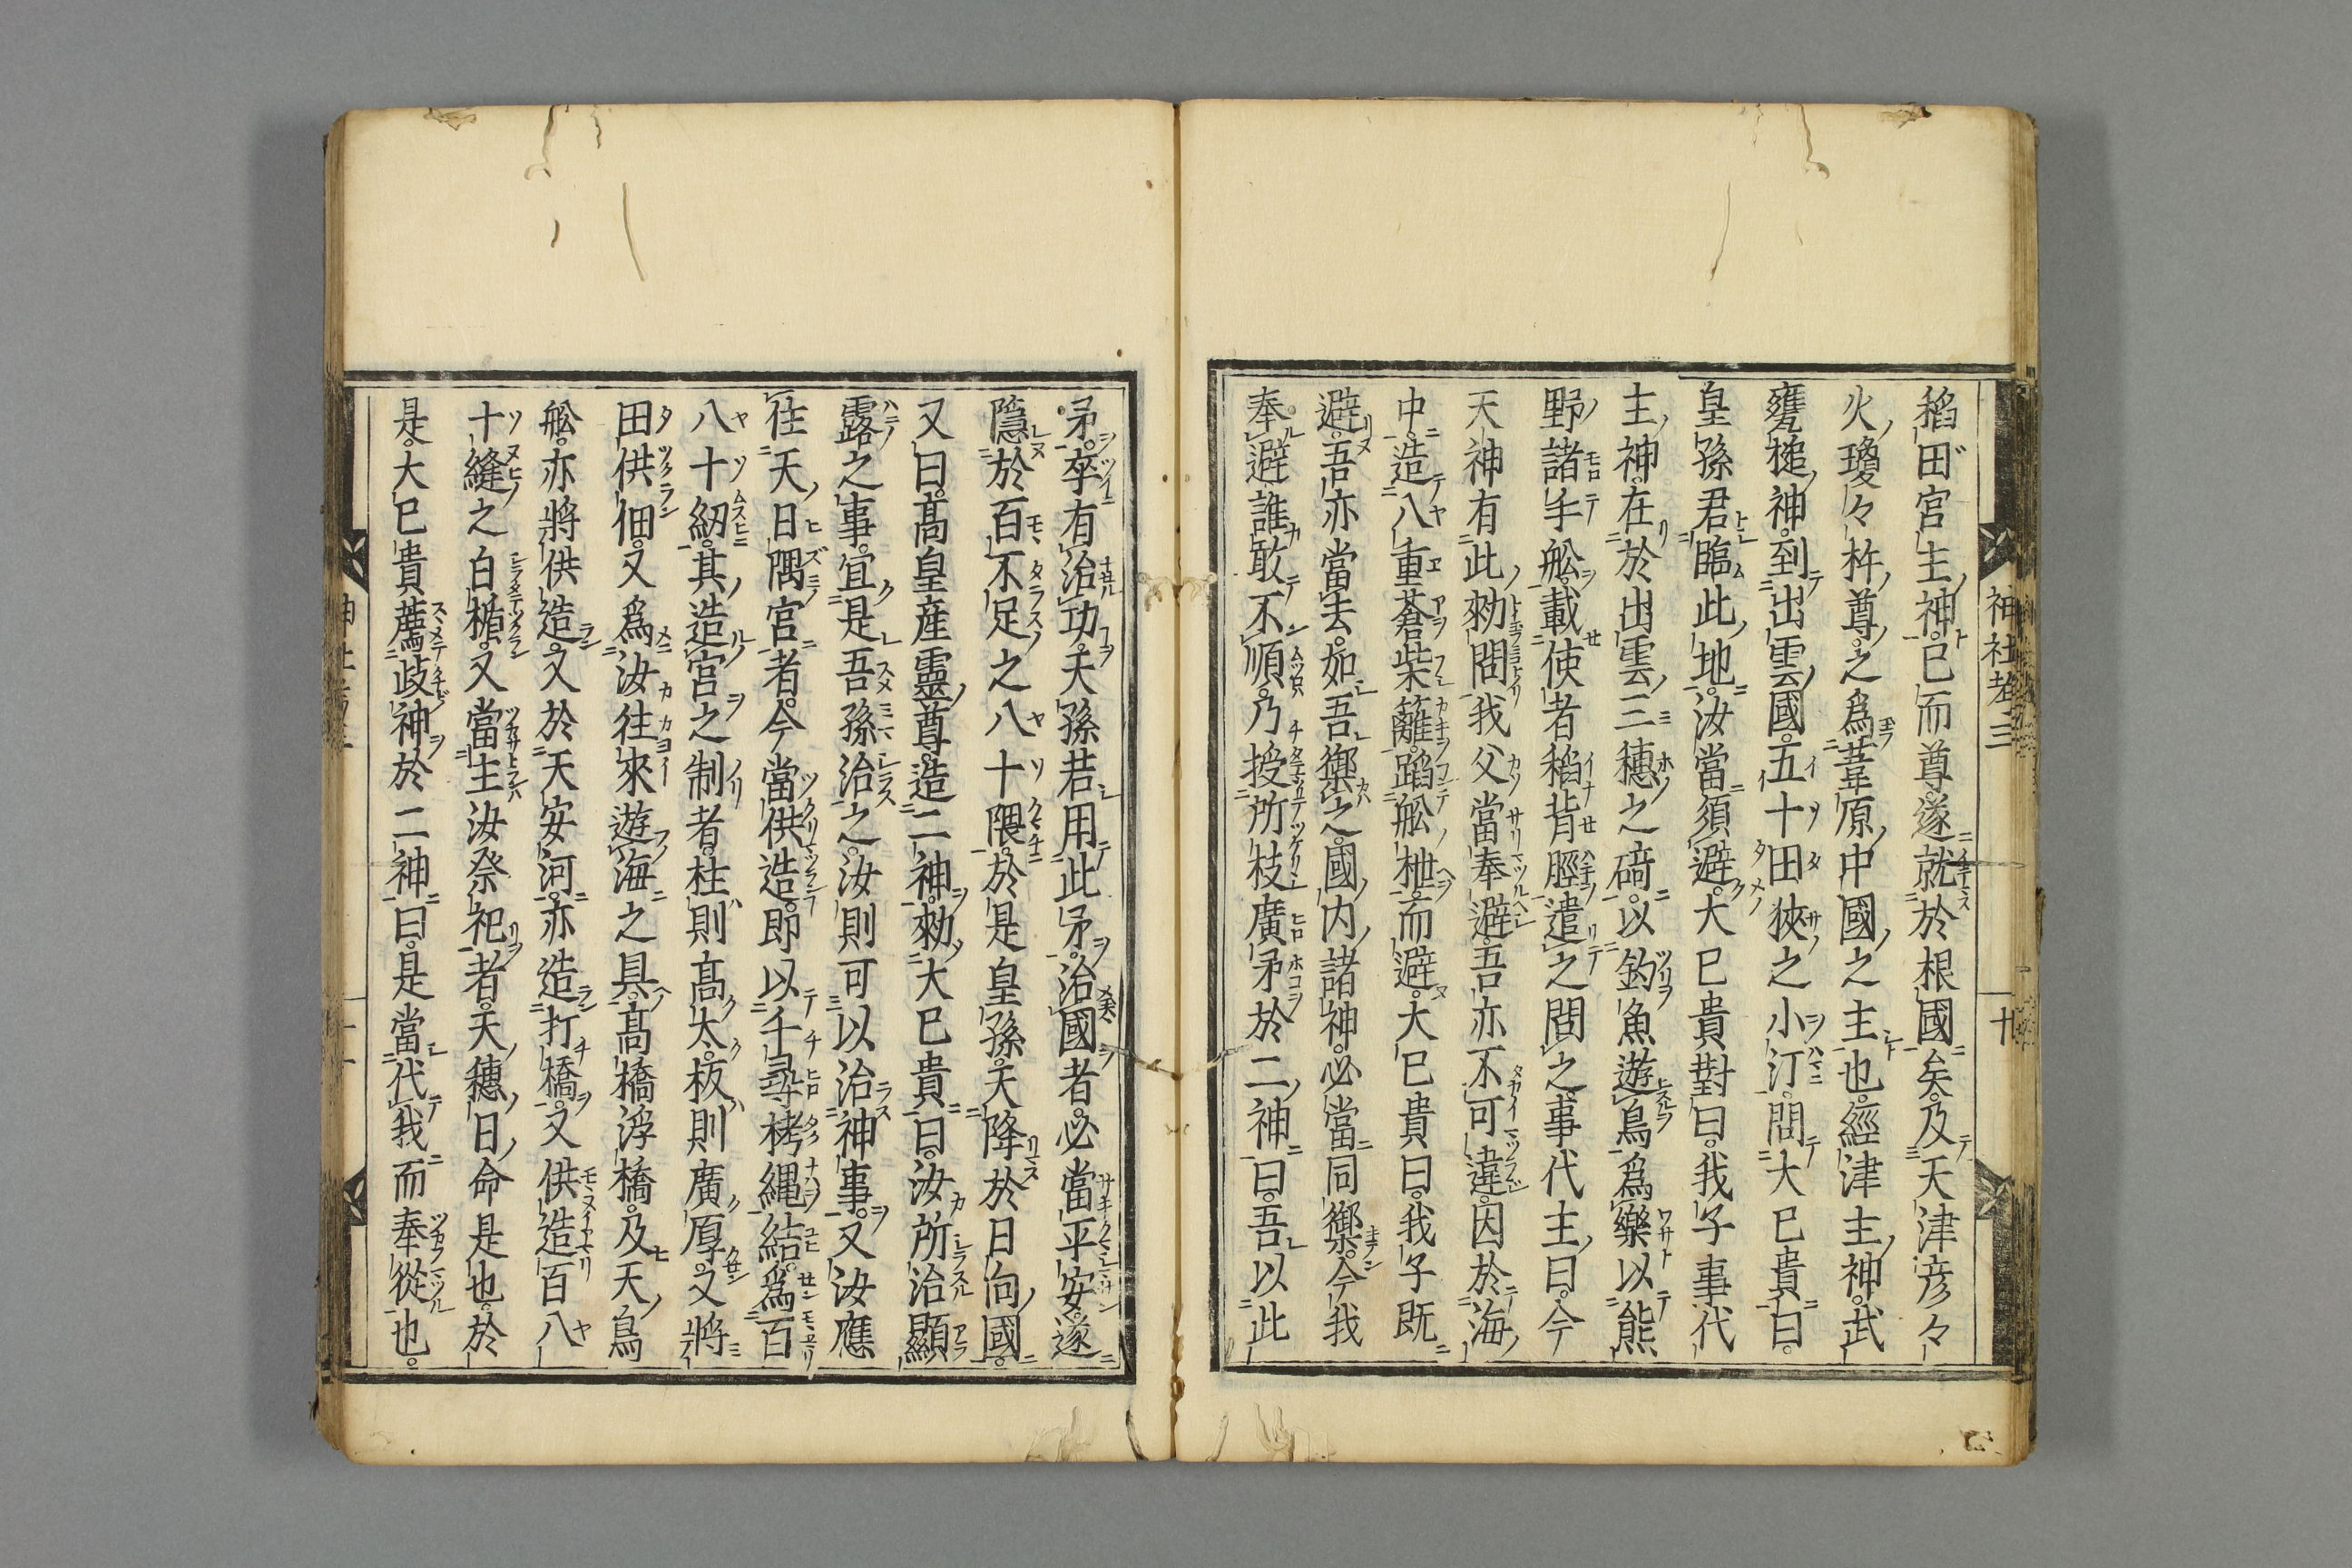 稻田宮主神已而尊遂就於根國矣及天津彦々
火瓊々杵尊之爲葦原中國之主也經津主神武
甕槌神到出雲國五十田狹之小汀問大已貴曰
皇孫君臨此地汝當須避大已貴對曰我子事代
主神在於出雲三穗之碕以釣魚遊鳥爲樂以熊
野諸手舩載使者稻背脛遣之問之事代主曰今
天神有此勅問我父當奉避吾亦不可違因於海
中造八重蒼柴籬蹈舩枻而避大已貴曰我子既
避吾亦當去如吾禦之國内諸神必當同禦今我
奉避誰敢不順乃授所枝廣矛於二神曰吾以此
神社考三
十
矛卒有治功天孫若用此矛治國者必當平安遂
隱於百不足之八十隈於是皇孫天降於日向國
又曰髙皇産靈尊造二神勅大已貴曰汝所治顯
露之事宜是吾孫治之汝則可以治神事又汝應
住天日隅宮者今當供造即以千尋栲縄結爲百
八十紉其造宮之制者柱則髙太板則廣厚又將
田供佃又爲汝往來遊海之具髙橋浮橋及天鳥
舩亦將供造又於天安河亦造打橋又供造百八
十縫之白楯又當主汝祭祀者天穗日命是也於
是大已貴薦歧神於二神曰是當代我而奉從也